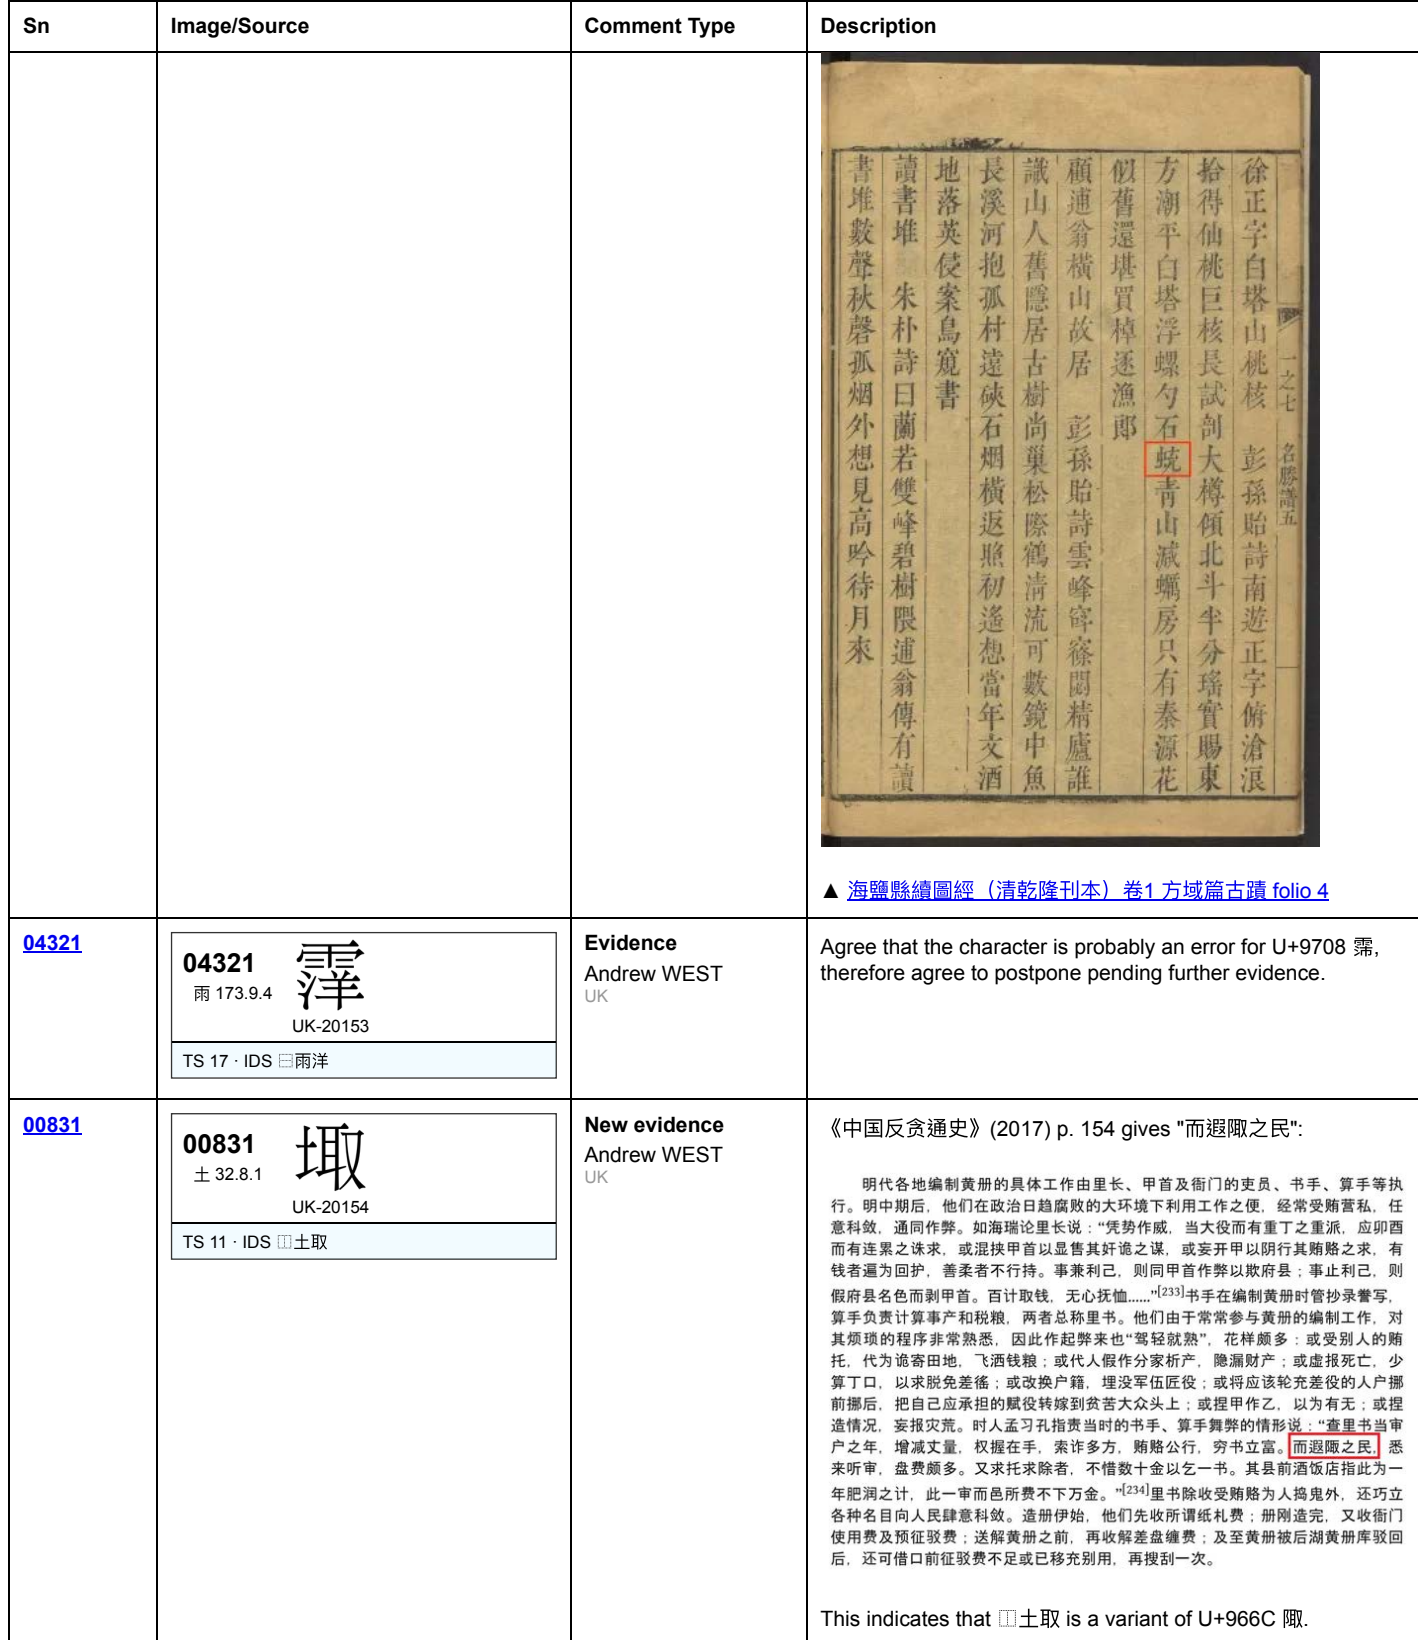 Sn Image/Source Comment Type Description
徐正字白塔山桃核 彭孫貽詩南遊正字俯滄浪
拾得仙桃巨核長試剖大樽傾北斗半分瑤實賜東
方潮平白塔浮螺勺石蜣青山減蠣房只有秦源花
似舊還堪買棹逐漁郎
顧逋翁橫山故居 彭孫貽詩雲峰窂窱閟精廬誰
識山人舊隱居古樹尚巢松際鶴清流可數鏡中魚
長溪河抱孤村遠硤石烟橫返照初遙想當年文酒
地落英侵案鳥窺書
讀書堆 朱朴詩曰蘭若雙峰碧樹隈逋翁傳有讀
書堆數聲秋磬孤烟外想見高吟待月來
一之七 名勝譜五
▲ 海鹽縣續圖經（清乾隆刊本）卷1 方域篇古蹟 folio 4
04321
04321
雨 173.9.4
UK-20153
TS 17 · IDS ⿱雨洋
Evidence
Andrew WEST
UK
Agree that the character is probably an error for U+9708 霈,
therefore agree to postpone pending further evidence.
00831
00831
土 32.8.1
埾
UK-20154
TS 11 · IDS ⿰土取
New evidence
Andrew WEST
UK
《中国反贪通史》(2017) p. 154 gives "而遐陬之民":
明代各地编制黄册的具体工作由里长、甲首及衙门的吏员、书手、算手等执
行。明中期后，他们在政治日趋腐败的大环境下利用工作之便，经常受贿营私，任
意科敛，通同作弊。如海瑞论里长说：“凭势作威，当大役而有重丁之重派，应卯酉
而有连累之诛求，或混挟甲首以显售其奸诡之谋，或妄开甲以阴行其贿赂之求，有
钱者遍为回护，善柔者不行持。事兼利己，则同甲首作弊以欺府县；事止利己，则
假府县名色而剥甲首。百计取钱，无心抚恤......”[233]书手在编制黄册时管抄录誊写，
算手负责计算事产和税粮，两者总称里书。他们由于常常参与黄册的编制工作，对
其烦琐的程序非常熟悉，因此作起弊来也“驾轻就熟”，花样颇多：或受别人的贿
托，代为诡寄田地，飞洒钱粮；或代人假作分家析产，隐漏财产；或虚报死亡，少
算丁口，以求脱免差徭；或改换户籍，埋没军伍匠役；或将应该轮充差役的人户挪
前挪后，把自己应承担的赋役转嫁到贫苦大众头上；或捏甲作乙，以为有无；或捏
造情况，妄报灾荒。时人孟习孔指责当时的书手、算手舞弊的情形说：“查里书当审
户之年，增减丈量，权握在手，索诈多方，贿赂公行，穷书立富。而遐陬之民，悉
来听审，盘费颇多。又求托求除者，不惜数十金以乞一书。其县前酒饭店指此为一
年肥润之计，此一审而邑所费不下万金。”[234]里书除收受贿赂为人捣鬼外，还巧立
各种名目向人民肆意科敛。造册伊始，他们先收所谓纸札费；册刚造完，又收衙门
使用费及预征驳费；送解黄册之前，再收解差盘缠费；及至黄册被后湖黄册库驳回
后，还可借口前征驳费不足或已移充别用，再搜刮一次。
This indicates that ⿰土取 is a variant of U+966C 陬.